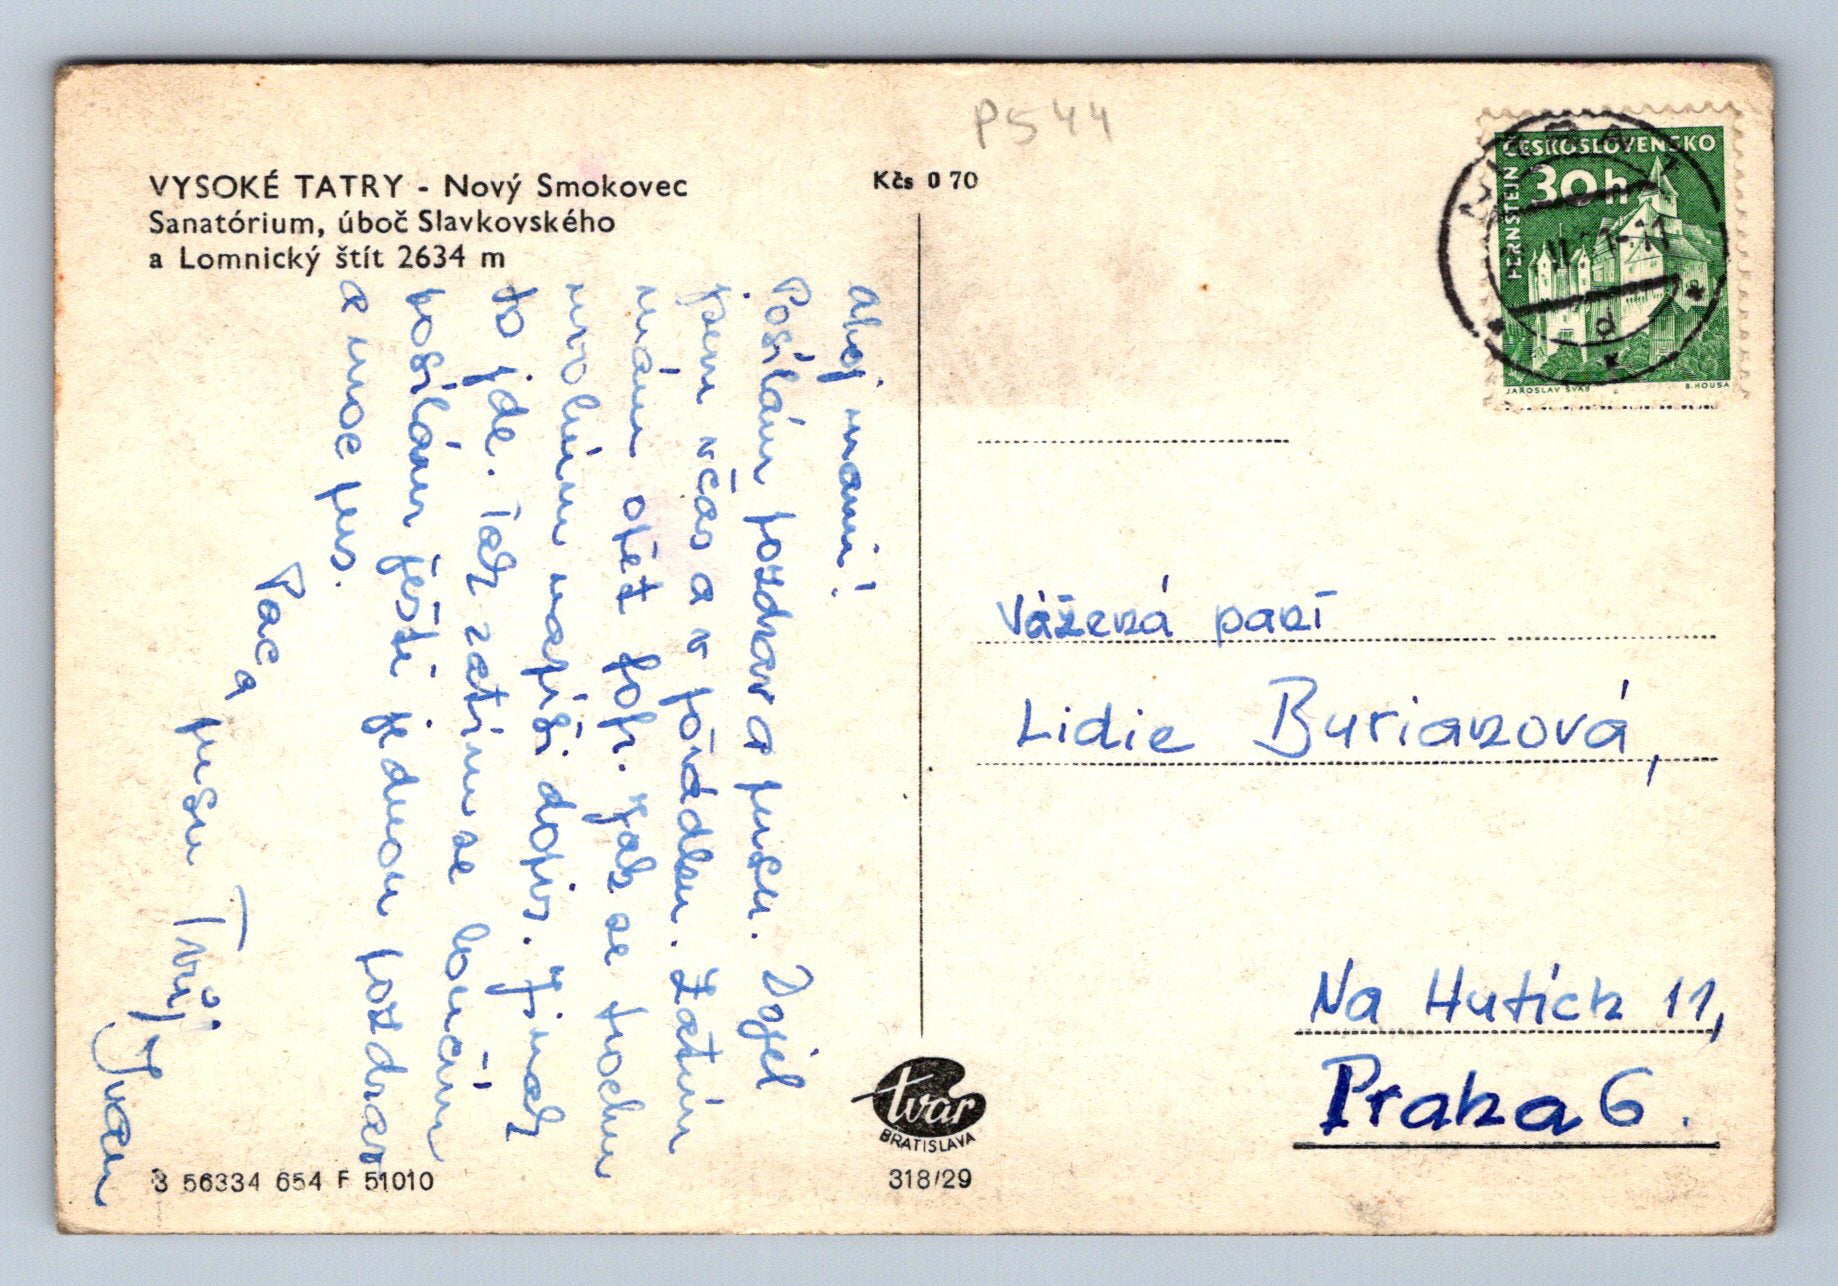 P544
VYSOKÉ TATRY - Nový Smokovec
Sanatórium, úboč Slavkovského
a Lomnický štít 2634 m
Kčs 0 70
ČESKOSLOVENSKO
30h
PERNŠTEJN
JAROSLAV ŠVÁB
B. HOUSA
d
Ahoj mami!
Posílám pozdrav a pusu. Dojel
jsem včas a v pořádku. Zatím
mám opět fofr. Jak se trochu
uvolním napíši dopis. Jinak
to jde. Tak zatím se loučím
posílám ještě jednou pozdrav
a moc pus.
Pac a
pusu Tvůj
Ivan
Vážená paní
Lidie Burianová,
Na Hutích 11,
Praha 6.
tvar
BRATISLAVA
3 56334 654 F 51010
318/29